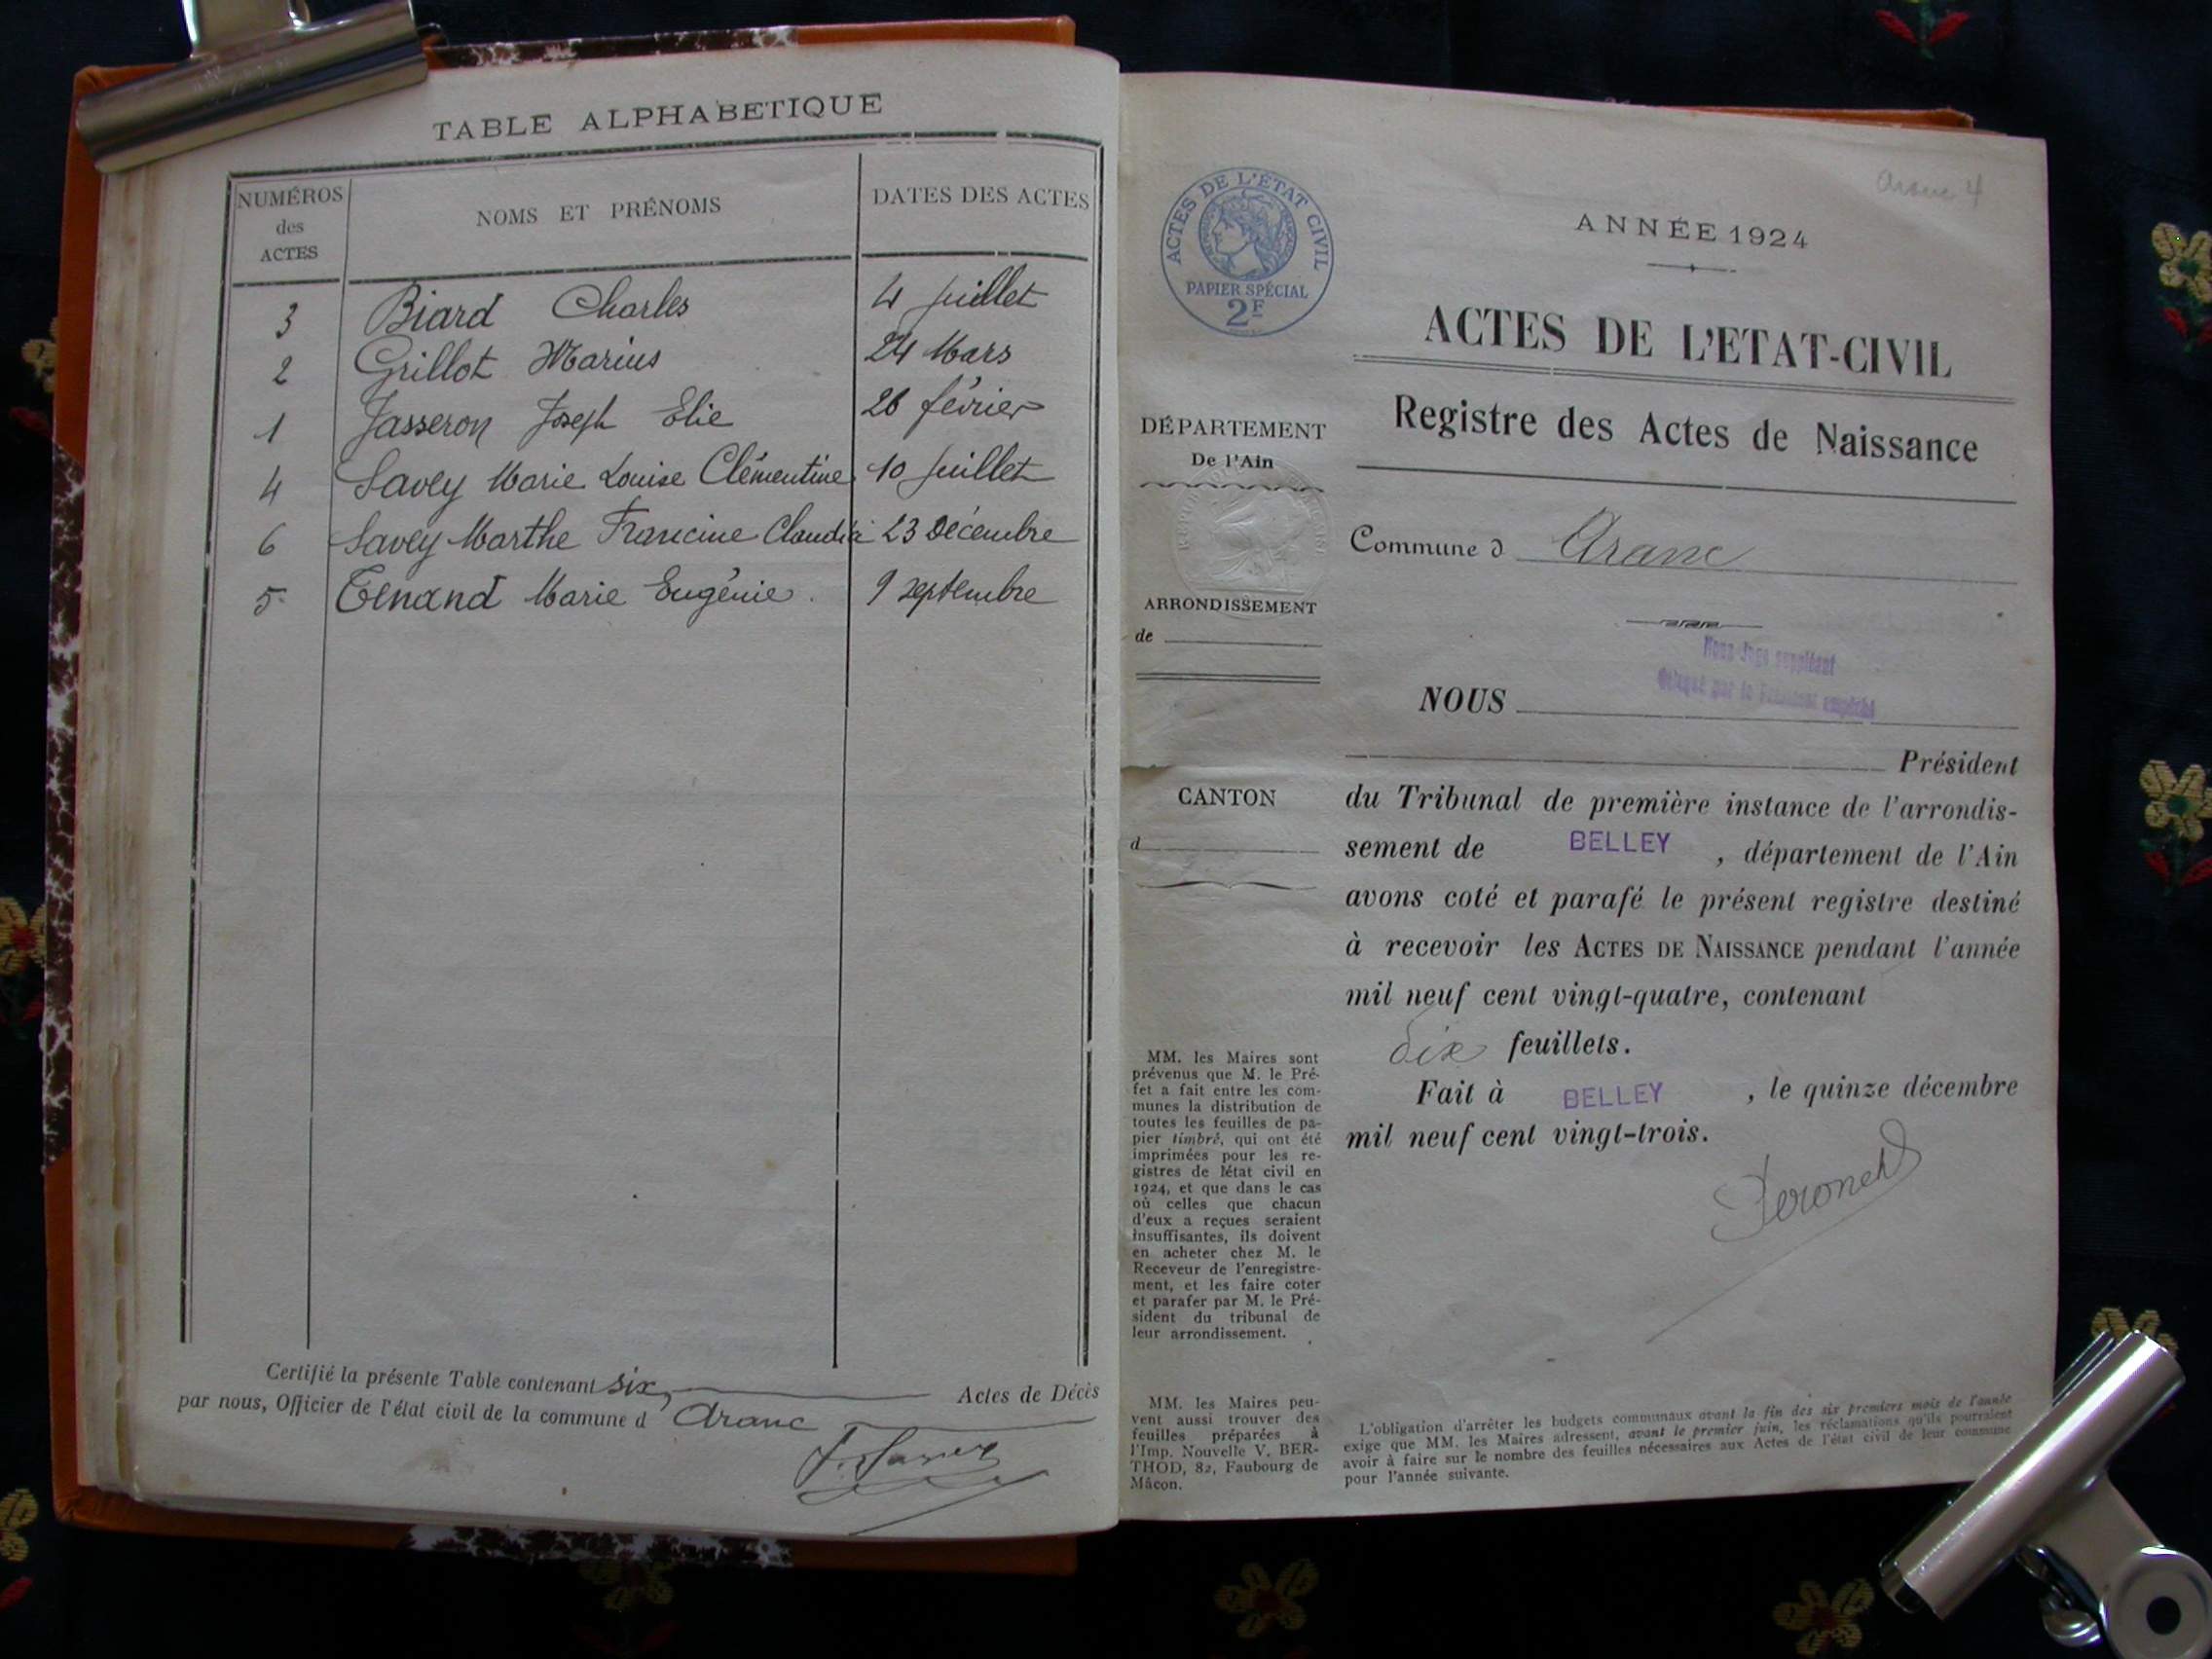 TABLE ALPHABETIQUE
NUMÉROS
des
ACTES
NOMS ET PRÉNOMS
DATES DES ACTES
3 Biard Charles 4 juillet
2 Grillot Marius 24 Mars
1 Jasseron Joseph Elie 26 février
4 Savey Marie Louise Clémentine 10 juillet
6 Savey Marthe Francine Claudia 23 Décembre
5 Tenand Marie Eugénie. 9 septembre
Certifié la présente Table contenant six, Actes de Décès
par nous, Officier de l'état civil de la commune d'Aranc
ACTES DE L'ÉTAT CIVIL
PAPIER SPÉCIAL
2F
DÉPARTEMENT
De l'Ain
ARRONDISSEMENT
de
CANTON
d
MM. les Maires sont
prévenus que M. le Pré-
fet a fait entre les com-
munes la distribution de
toutes les feuilles de pa-
pier timbré, qui ont été
imprimées pour les re-
gistres de létat civil en
1924, et que dans le cas
où celles que chacun
d'eux a reçues seraient
insuffisantes, ils doivent
en acheter chez M. le
Receveur de l'enregistre-
ment, et les faire coter
et parafer par M. le Pré-
sident du tribunal de
leur arrondissement.
MM. les Maires peu-
vent aussi trouver des
feuilles préparées à
l'Imp. Nouvelle V. BER-
THOD, 82, Faubourg de
Mâcon.
Aranc 4
ANNÉE 1924
ACTES DE L'ETAT-CIVIL
Registre des Actes de Naissance
Commune d Aranc
Nous Juge suppléant
Délégué par le Président empêché
NOUS
Président
du Tribunal de première instance de l'arrondis-
sement de BELLEY, département de l'Ain
avons coté et parafé le présent registre destiné
à recevoir les ACTES DE NAISSANCE pendant l'année
mil neuf cent vingt-quatre, contenant
Six feuillets.
Fait à BELLEY, le quinze décembre
mil neuf cent vingt-trois.
L'obligation d'arrêter les budgets communaux avant la fin des six premiers mois de l'année
exige que MM. les Maires adressent, avant le premier juin, les réclamations qu'ils pourraient
avoir à faire sur le nombre des feuilles nécessaires aux Actes de l'état civil de leur commune
pour l'année suivante.